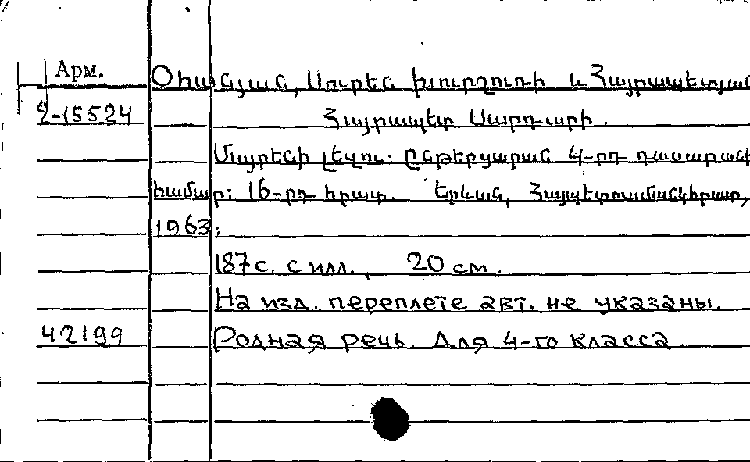 Арм. Օհանյան, Սուրեն խուրշուդի և Հայրապետյան
2-15524 Հայրապետ Սարդարի.
Մայրենի լեզու: Ընթերցարան 4-րդ դասարանի
համար: 16-րդ հրատ. Երևան, Հայպետուսմանկհրատ,
1963:
187 с. с илл., 20 см.
На изд. переплете авт. не указаны.
42199 Родная речь. Для 4-го класса